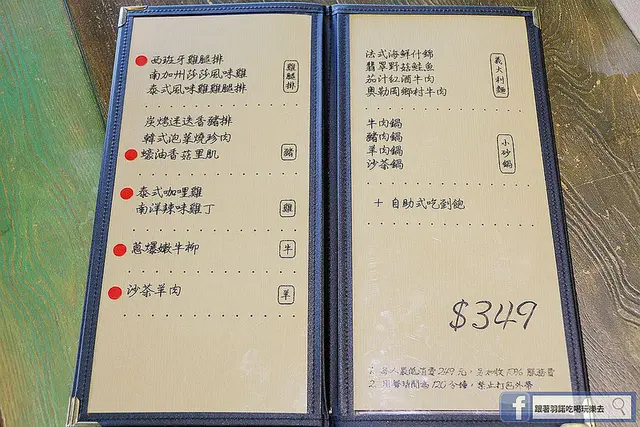 西班牙雞腿排
南加州莎莎風味雞
泰式風味雞雞腿排
雞腿排
炭烤迷迭香豬排
韓式泡菜燒珍肉
蠔油香菇里肌
豬
泰式咖哩雞
南洋辣味雞丁
雞
蔥爆嫩牛柳
牛
沙茶羊肉
羊
法式海鮮什錦
翡翠野菇鮭魚
茄汁紅酒牛肉
奧勒岡鄉村牛肉
義大利麵
牛肉鍋
豬肉鍋
羊肉鍋
沙茶鍋
小砂鍋
+ 自助式吃到飽
$349
1. 每人最低消費249元，另加收10%服務費
2. 用餐時間為120分鐘，禁止打包外帶
f 跟著羽諾吃喝玩樂去